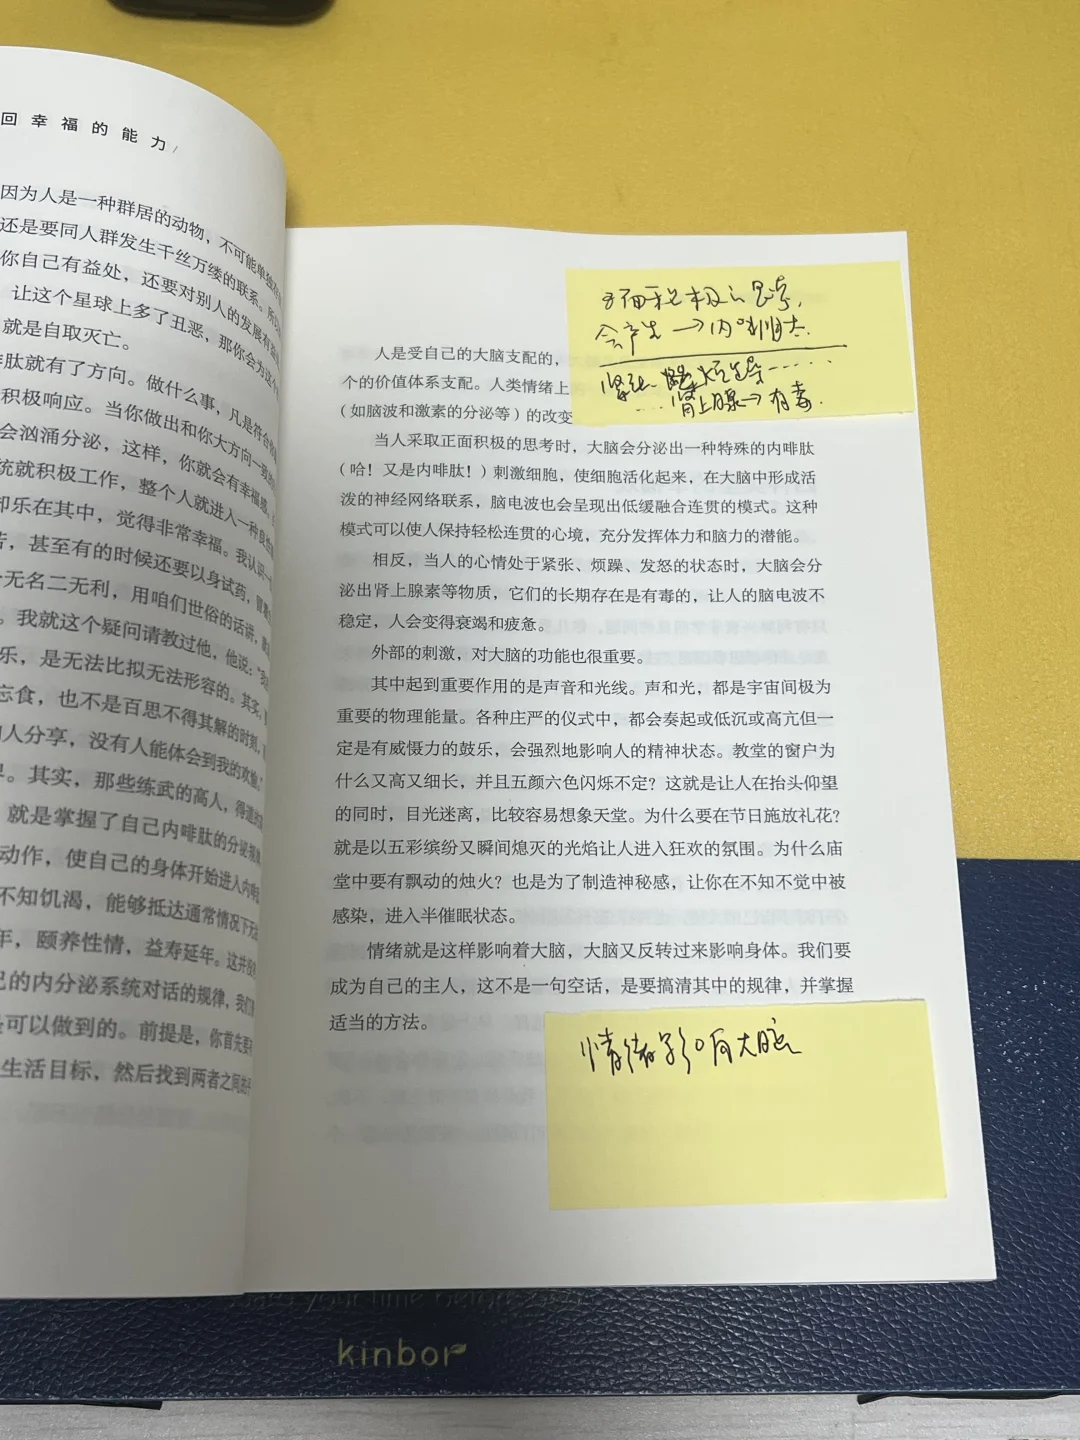 回幸福的能力/
因为人是一种群居的动物，不可能单独存
还是要同人群发生千丝万缕的联系。所
你自己有益处，还要对别人的发展有益
让这个星球上多了丑恶，那你会为这个
就是自取灭亡。
肽就有了方向。做什么事，凡是符合
积极响应。当你做出和你大方向一致的
会汹涌分泌，这样，你就会有幸福感，
统就积极工作，整个人就进入一种良
却乐在其中，觉得非常幸福。我认识一
苦，甚至有的时候还要以身试药，冒
一无名二无利，用咱们世俗的话讲，
。我就这个疑问请教过他，他说：
乐，是无法比拟无法形容的。其实，
忘食，也不是百思不得其解的时刻，
人分享，没有人能体会到我的欢愉。
。其实，那些练武的高人，得道的
就是掌握了自己内啡肽的分泌规
动作，使自己的身体开始进入内啡
不知饥渴，能够抵达通常情况下无
年，颐养性情，益寿延年。这并没
己的内分泌系统对话的规律，我们
是可以做到的。前提是，你首先要
生活目标，然后找到两者之间的
正面积极的思考，
会产生→内啡肽.
紧张、烦躁、发怒……
……肾上腺→有毒.
人是受自己的大脑支配的，
个的价值体系支配。人类情绪上
（如脑波和激素的分泌等）的改变
当人采取正面积极的思考时，大脑会分泌出一种特殊的内啡肽
（哈！又是内啡肽！）刺激细胞，使细胞活化起来，在大脑中形成活
泼的神经网络联系，脑电波也会呈现出低缓融合连贯的模式。这种
模式可以使人保持轻松连贯的心境，充分发挥体力和脑力的潜能。
相反，当人的心情处于紧张、烦躁、发怒的状态时，大脑会分
泌出肾上腺素等物质，它们的长期存在是有毒的，让人的脑电波不
稳定，人会变得衰竭和疲惫。
外部的刺激，对大脑的功能也很重要。
其中起到重要作用的是声音和光线。声和光，都是宇宙间极为
重要的物理能量。各种庄严的仪式中，都会奏起或低沉或高亢但一
定是有威慑力的鼓乐，会强烈地影响人的精神状态。教堂的窗户为
什么又高又细长，并且五颜六色闪烁不定？这就是让人在抬头仰望
的同时，目光迷离，比较容易想象天堂。为什么要在节日施放礼花？
就是以五彩缤纷又瞬间熄灭的光焰让人进入狂欢的氛围。为什么庙
堂中要有飘动的烛火？也是为了制造神秘感，让你在不知不觉中被
感染，进入半催眠状态。
情绪就是这样影响着大脑，大脑又反转过来影响身体。我们要
成为自己的主人，这不是一句空话，是要搞清其中的规律，并掌握
适当的方法。
情绪影响大脑
kinbor